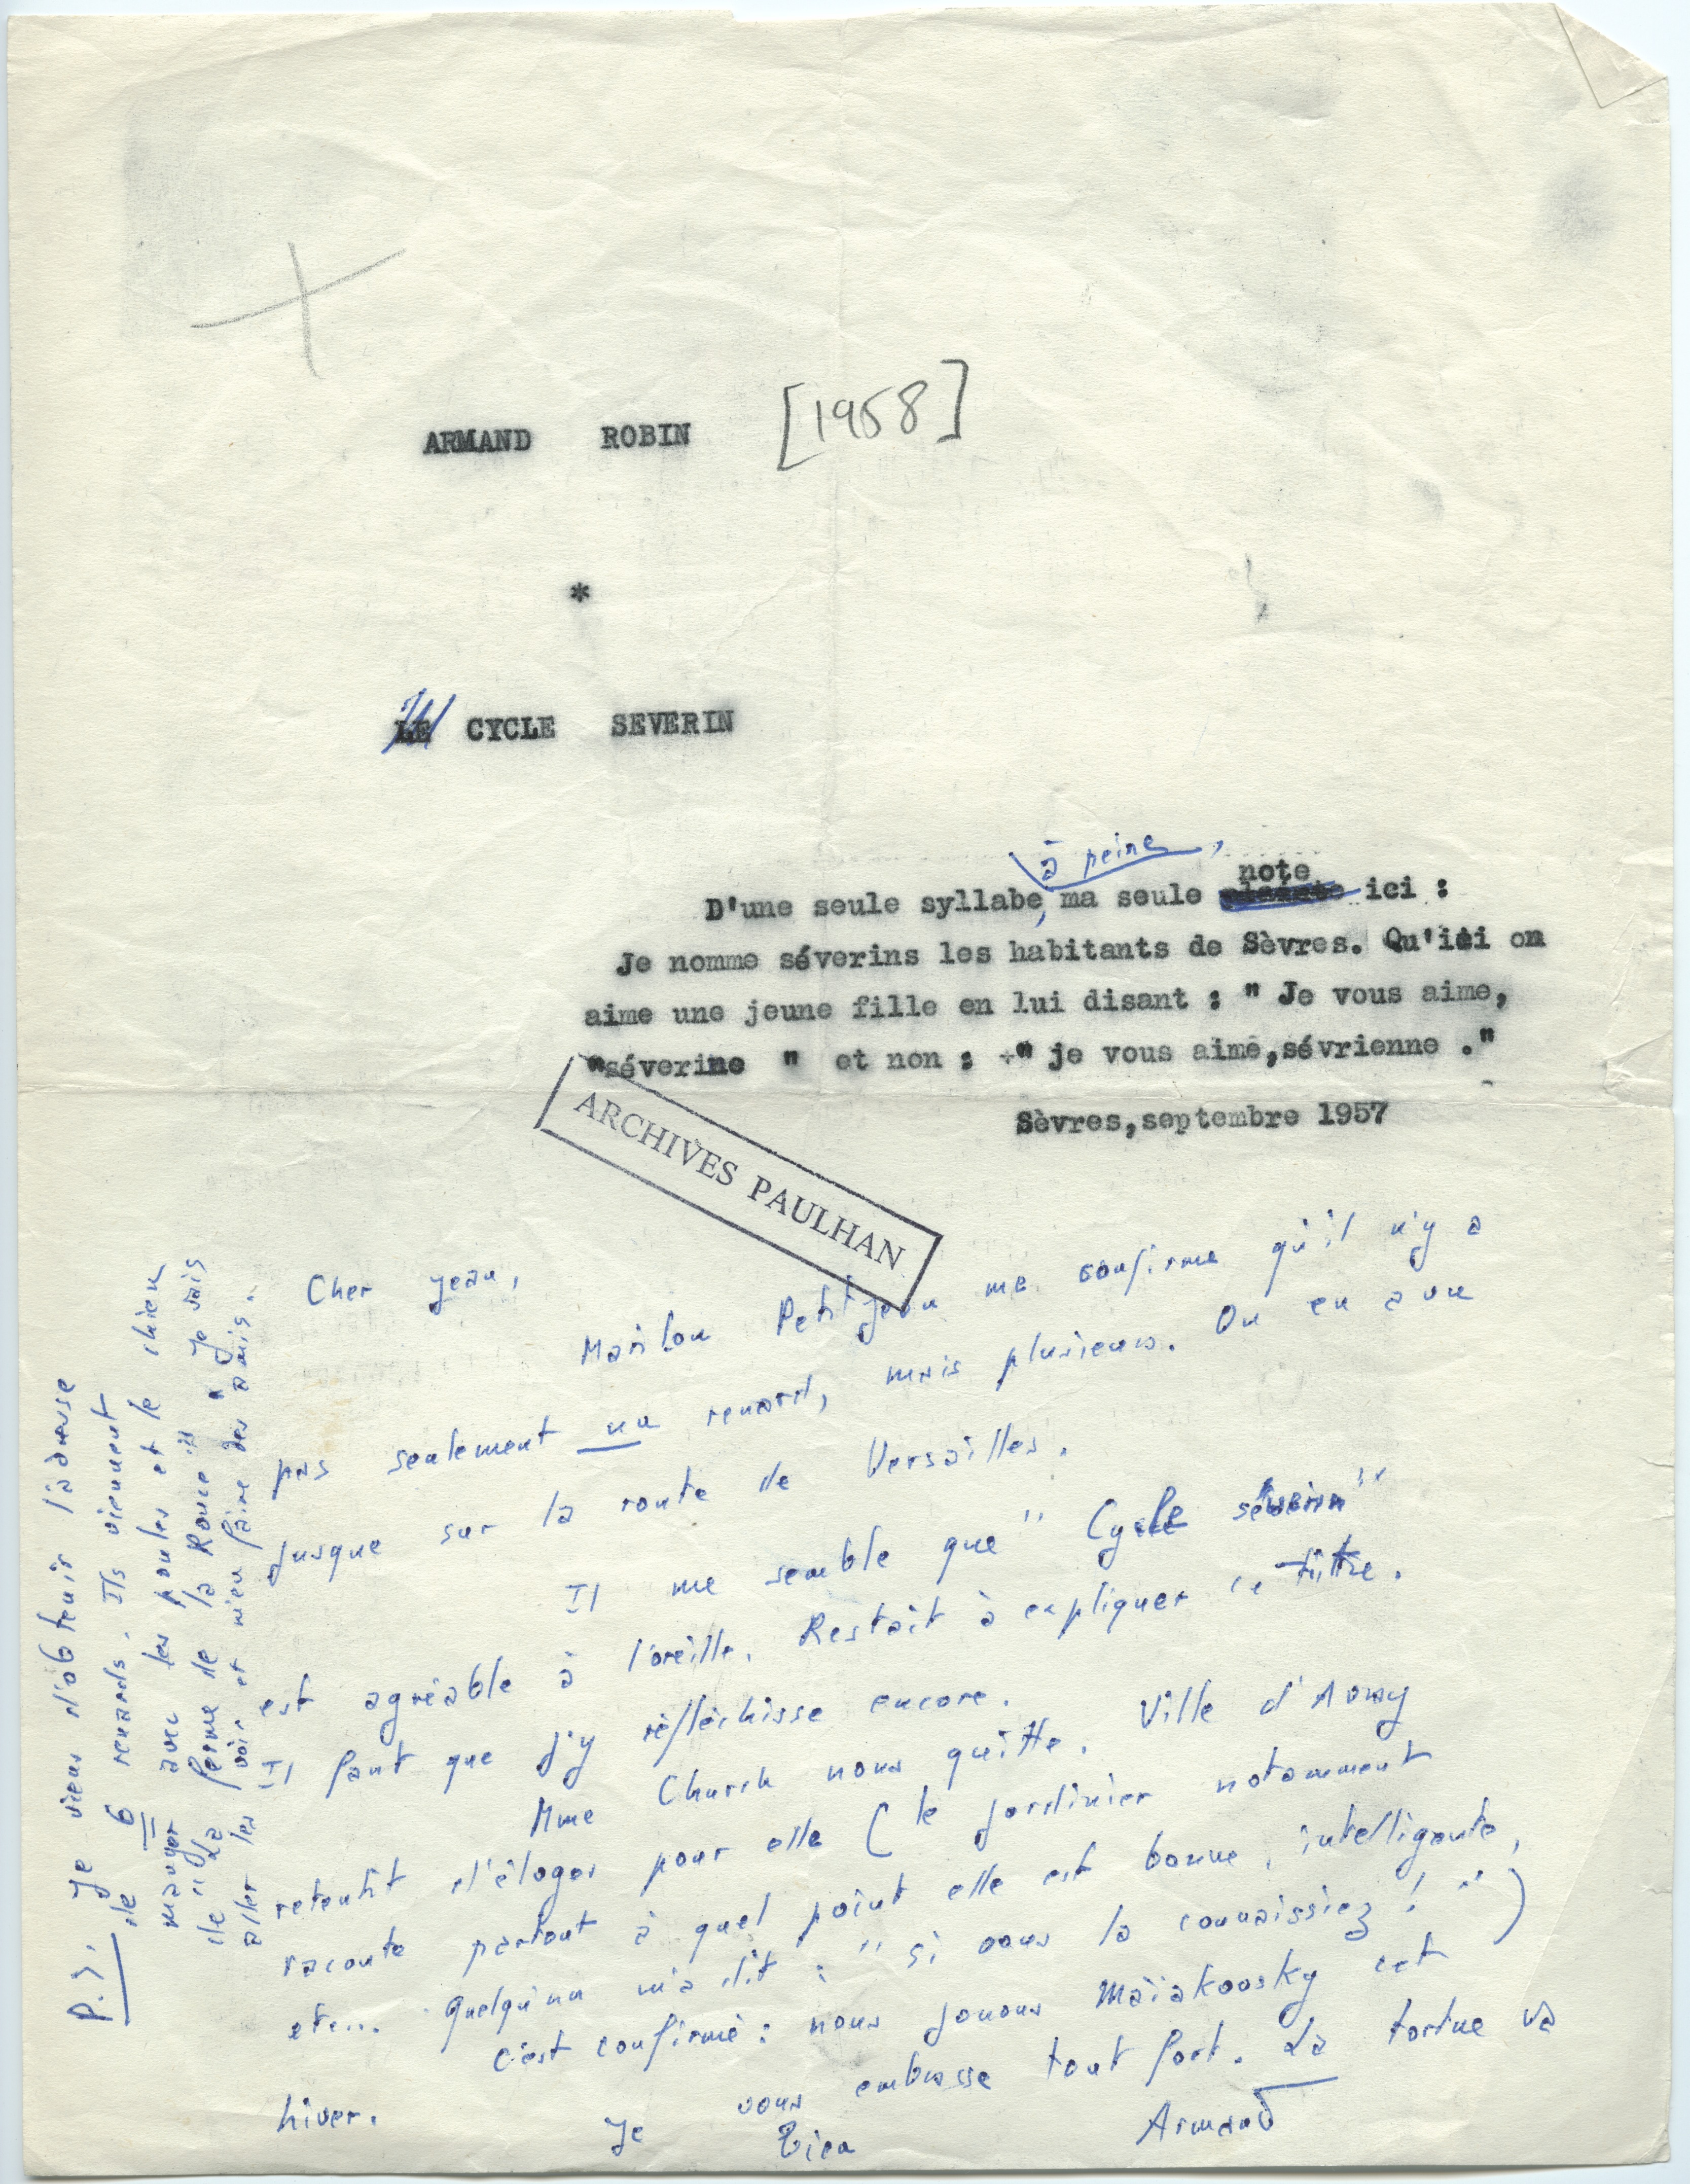 ARMAND ROBIN [1958]
*
LE CYCLE SEVERIN
à peine,
note
D'une seule syllabe, ma seule ici :
Je nomme séverins les habitants de Sèvres. Qu'ici on
aime une jeune fille en lui disant : " Je vous aime,
"séverine " et non : " je vous aime,sévrienne ."
Sèvres,septembre 1957
ARCHIVES PAULHAN
Cher Jean,
Marilou Petitjean me confirme qu'il n'y a
pas seulement un renard, mais plusieurs. On en a vu
jusque sur la route de Versailles.
Il me semble que " Cycle séverin"
est agréable à l'oreille. Restait à expliquer ce titre.
Il faut que j'y réfléchisse encore.
Mme Church nous quitte. Ville d'Avray
retentit d'éloges pour elle ( le jardinier notamment
raconte partout à quel point elle est bonne, intelligente,
etc... Quelqu'un m'a dit : " si vous la connaissiez ! " )
C'est confirmé : nous jouons Maïakovsky cet
hiver. Je vous embrasse tout fort. La tortue va
bien
Armand
P.S. Je viens d'obtenir l'adresse
de 6 renards. Ils viennent
manger avec les poules et le chien
de "la ferme de la Ronce". Je vais
aller les voir et m'en faire des amis..